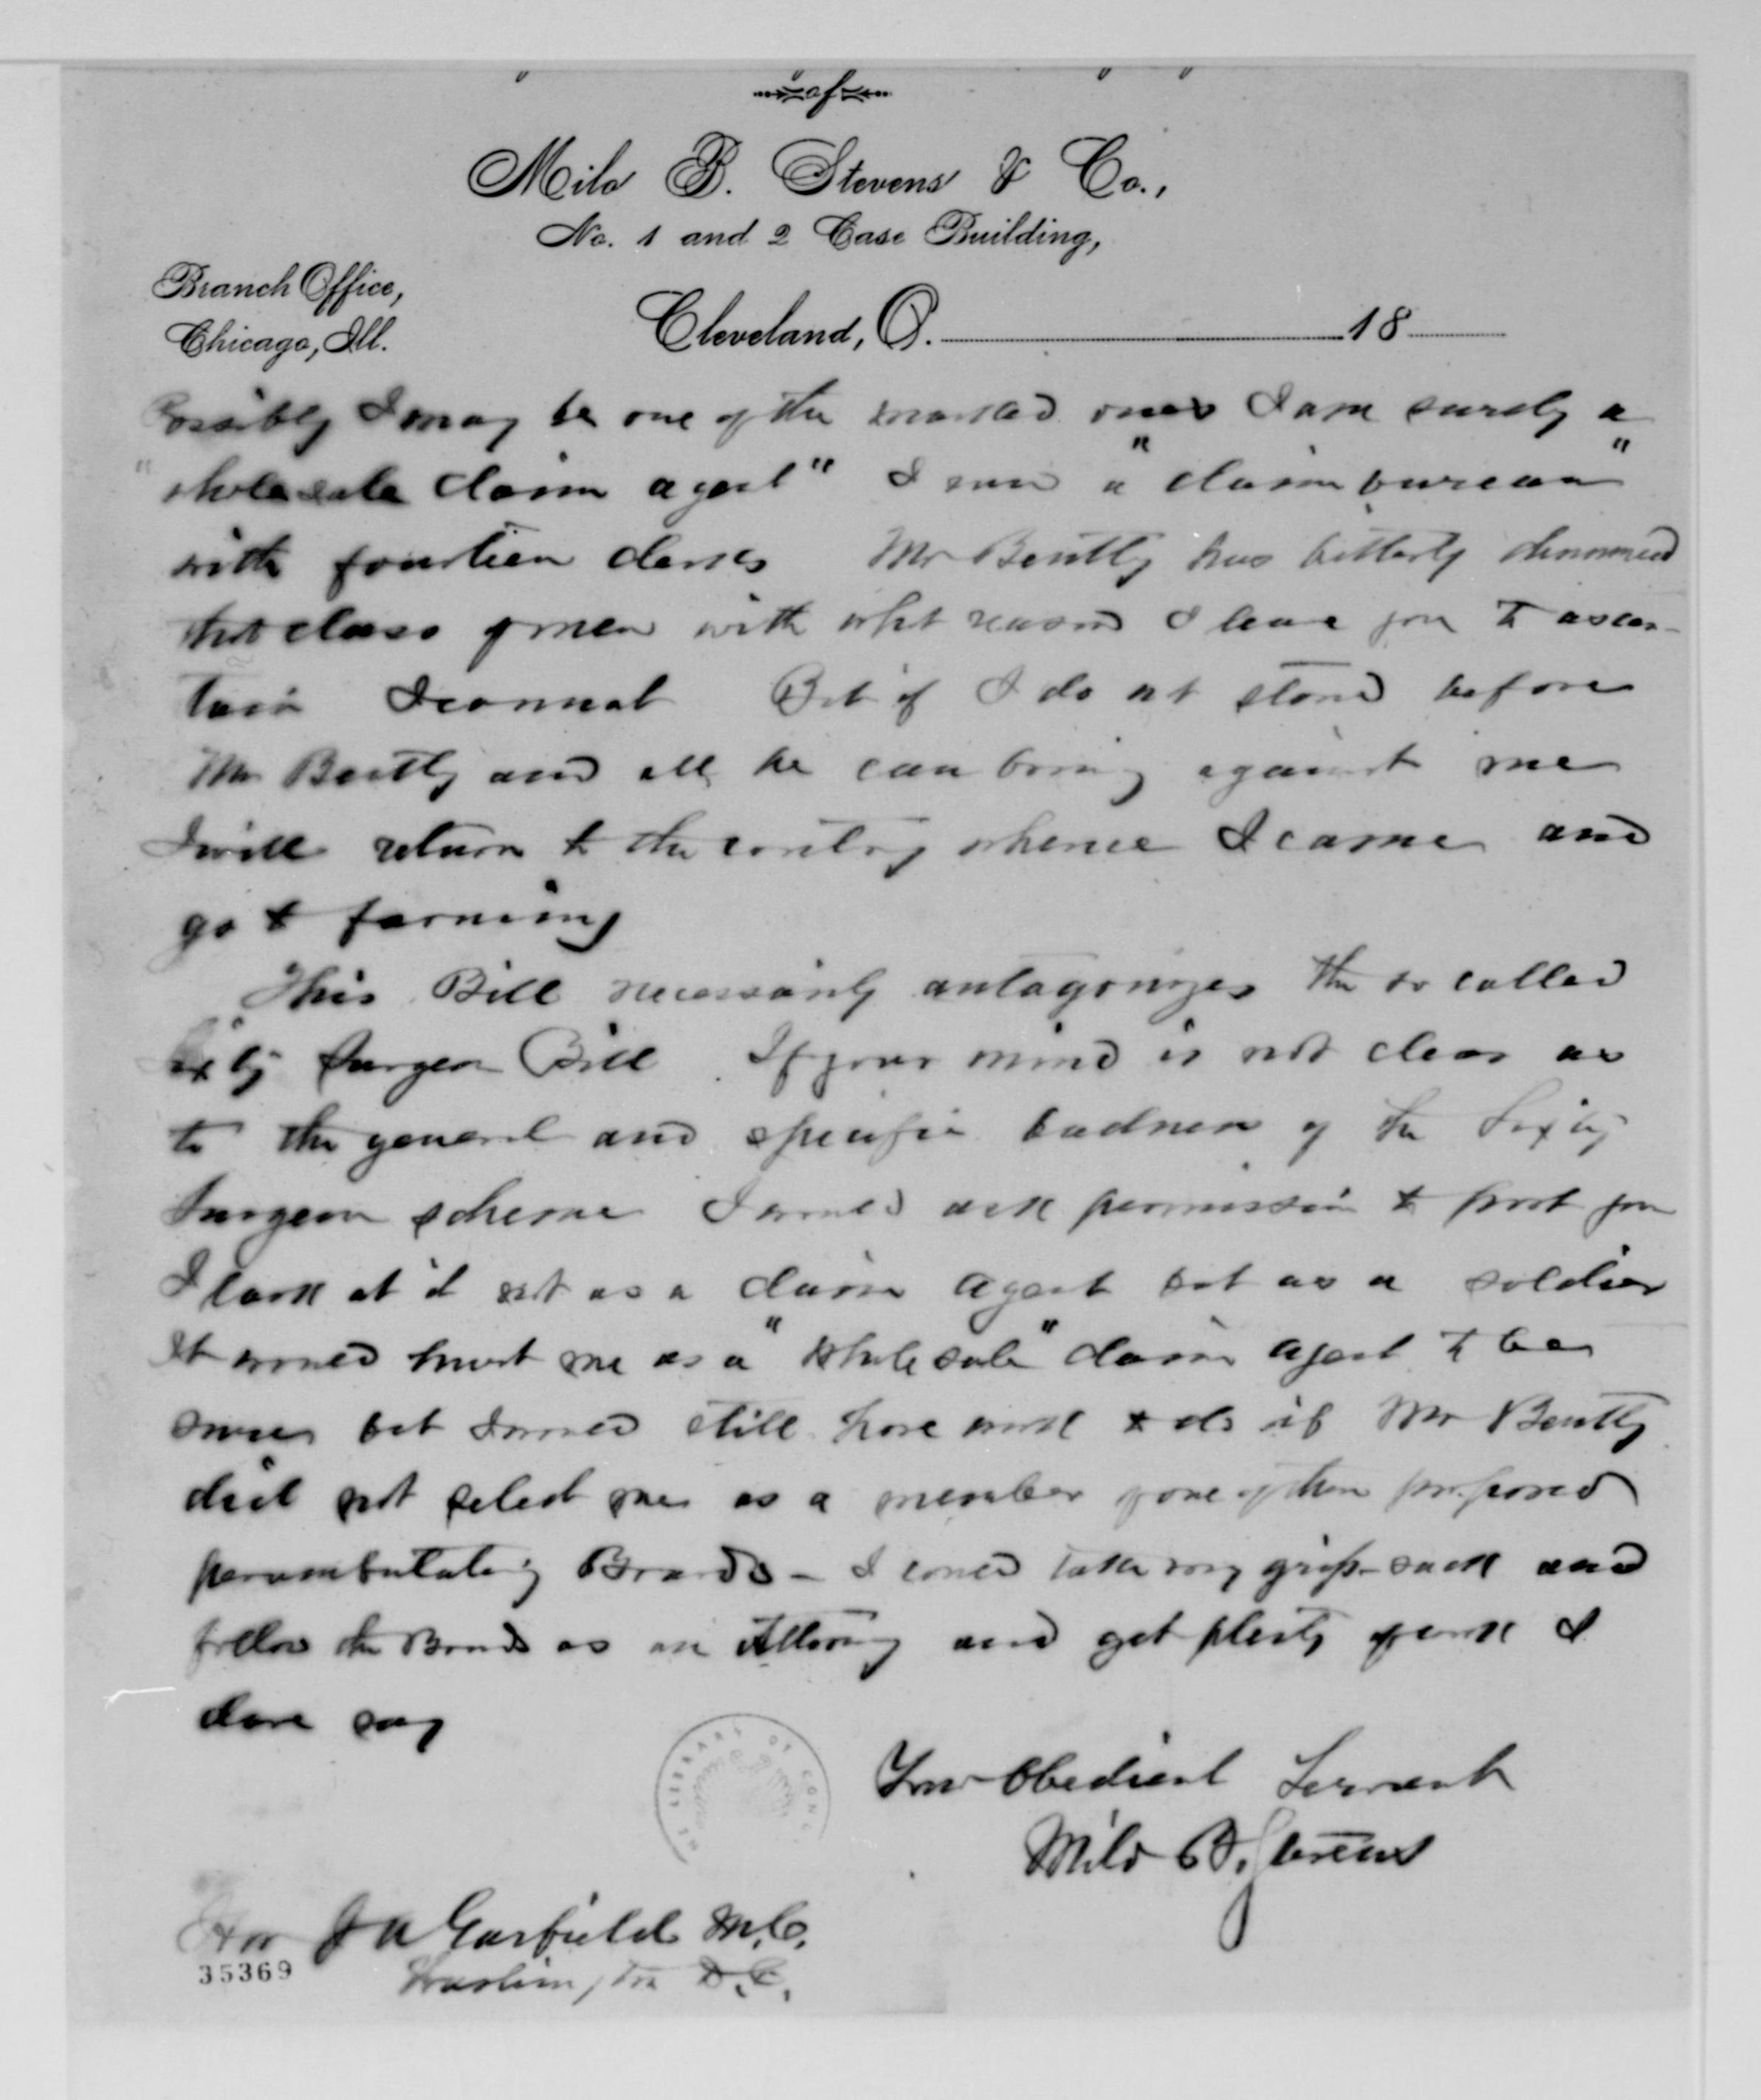 of
Milo B. Stevens & Co.,
No. 1 and 2 Case Building,
Branch Office,
Chicago, Ill.
Cleveland, O. 18
Possibly I may be one of the marked ones I am surely a
"wholesale claim agent" I run a "claim bureau"
with fourteen clerks Mr Bently has bitterly denounced
that class of men with what reason I leave you to ascer-
tain I cannot But if I do not stand before
Mr Bently and all he can bring against me
I will return to the country whence I came and
go to farming
This Bill necessarily antagonizes the so called
Sixty Surgeon Bill If your mind is not clear as
to the general and specific badness of the Sixty
Surgeon scheme I would ask permission to post you
I look at it not as a claim agent but as a soldier
It would hurt me as a "wholesale" claim agent to be
sure but I would still have work to do if Mr Bently
did not select me as a member of one of them proposed
perambulating Boards - I could take my grip-sack and
follow the Boards as an Attorney and get plenty of work I
dare say
Your Obedient Servant
Milo B. Stevens
THE LIBRARY OF CONG
Hon J A Garfield M.C.
35369
Washington D.C.